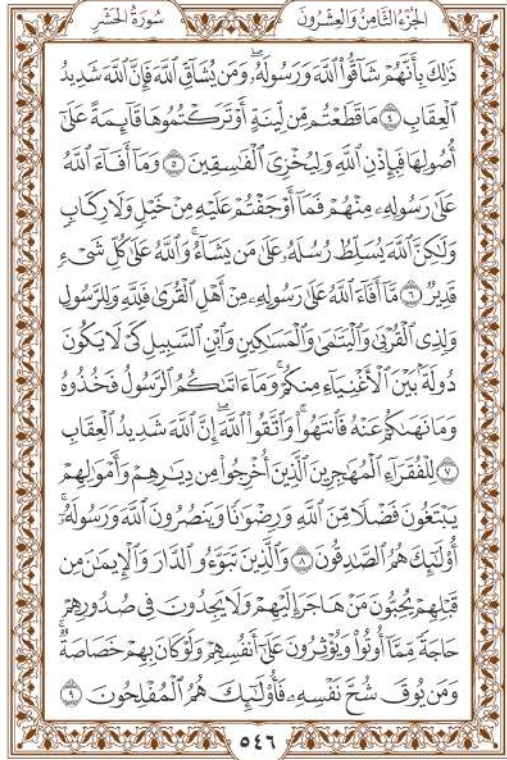 الجُزْءُ الثَّامِنُ وَالْعِشْرُونَ سُورَةُ الْحَشْرِ
ذَٰلِكَ بِأَنَّهُمْ شَآقُّوا۟ ٱللَّهَ وَرَسُولَهُۥۖ وَمَن يُشَآقِّ ٱللَّهَ فَإِنَّ ٱللَّهَ شَدِيدُ
ٱلْعِقَابِ ٤ مَا قَطَعْتُم مِّن لِّينَةٍ أَوْ تَرَكْتُمُوهَا قَآئِمَةً عَلَىٰٓ
أُصُولِهَا فَبِإِذْنِ ٱللَّهِ وَلِيُخْزِىَ ٱلْفَٰسِقِينَ ٥ وَمَآ أَفَآءَ ٱللَّهُ
عَلَىٰ رَسُولِهِۦ مِنْهُمْ فَمَآ أَوْجَفْتُمْ عَلَيْهِ مِنْ خَيْلٍ وَلَا رِكَابٍ
وَلَٰكِنَّ ٱللَّهَ يُسَلِّطُ رُسُلَهُۥ عَلَىٰ مَن يَشَآءُۚ وَٱللَّهُ عَلَىٰ كُلِّ شَىْءٍ
قَدِيرٌ ٦ مَّآ أَفَآءَ ٱللَّهُ عَلَىٰ رَسُولِهِۦ مِنْ أَهْلِ ٱلْقُرَىٰ فَلِلَّهِ وَلِلرَّسُولِ
وَلِذِى ٱلْقُرْبَىٰ وَٱلْيَتَٰمَىٰ وَٱلْمَسَٰكِينِ وَٱبْنِ ٱلسَّبِيلِ كَىْ لَا يَكُونَ
دُولَةًۢ بَيْنَ ٱلْأَغْنِيَآءِ مِنكُمْۚ وَمَآ ءَاتَىٰكُمُ ٱلرَّسُولُ فَخُذُوهُ
وَمَا نَهَىٰكُمْ عَنْهُ فَٱنتَهُوا۟ۚ وَٱتَّقُوا۟ ٱللَّهَۖ إِنَّ ٱللَّهَ شَدِيدُ ٱلْعِقَابِ
٧ لِلْفُقَرَآءِ ٱلْمُهَٰجِرِينَ ٱلَّذِينَ أُخْرِجُوا۟ مِن دِيَٰرِهِمْ وَأَمْوَٰلِهِمْ
يَبْتَغُونَ فَضْلًا مِّنَ ٱللَّهِ وَرِضْوَٰنًا وَيَنصُرُونَ ٱللَّهَ وَرَسُولَهُۥٓۚ
أُو۟لَٰٓئِكَ هُمُ ٱلصَّٰدِقُونَ ٨ وَٱلَّذِينَ تَبَوَّءُو ٱلدَّارَ وَٱلْإِيمَٰنَ مِن
قَبْلِهِمْ يُحِبُّونَ مَنْ هَاجَرَ إِلَيْهِمْ وَلَا يَجِدُونَ فِى صُدُورِهِمْ
حَاجَةً مِّمَّآ أُوتُوا۟ وَيُؤْثِرُونَ عَلَىٰٓ أَنفُسِهِمْ وَلَوْ كَانَ بِهِمْ خَصَاصَةٌۚ
وَمَن يُوقَ شُحَّ نَفْسِهِۦ فَأُو۟لَٰٓئِكَ هُمُ ٱلْمُفْلِحُونَ ٩
٥٤٦